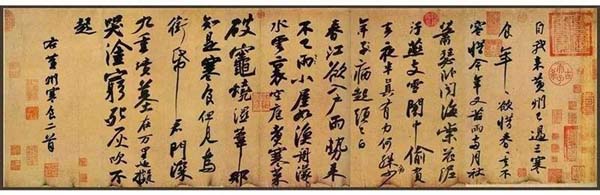 自我來黃州已過三寒
食年〻欲惜春〻去不
容惜今年又苦雨兩月秋
蕭瑟卧聞海棠花泥
汙燕支雪闇中偷負
去夜半真有力何殊少
年子病起頭已白
春江欲入戶雨勢來
不已雨小屋如漁舟濛〻
水雲裏空庖煮寒菜
破竈燒濕葦那
知是寒食但見烏
銜帋君門深
九重墳墓在萬里也擬
哭塗窮死灰吹不
起
右黃州寒食二首